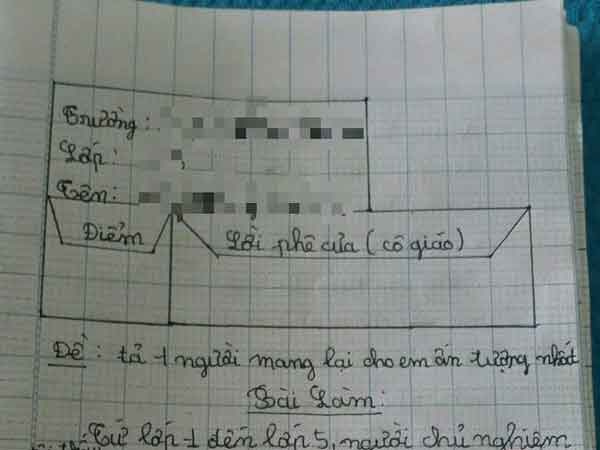 Trường:
Lớp:
Tên:
Điểm
Lời phê của (cô giáo)
Đề: tả 1 người mang lại cho em ấn tượng nhất
Bài Làm:
Từ lớp 1 đến lớp 5, người chủ nghiệm